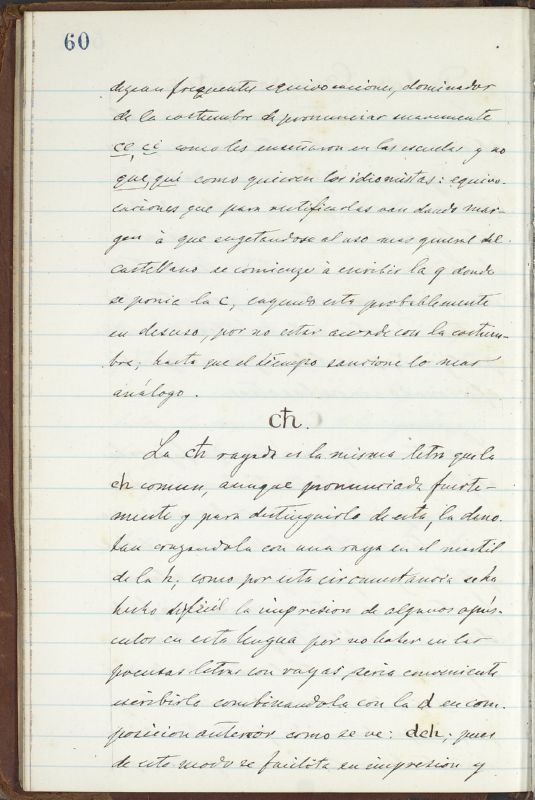 60
dezcan frequentes equivocaciones, dominados
de la costumbre de pronunciar suavemente
ce, ci como les enseñaron en las escuelas y no
que, qui como quieren los idiomistas: equivo-
caciones que para rectificarlas van dando mar-
gen à que sugetandose al uso mas general del
castellano se comienze à escribir la q donde
se ponie la c, cayendo esta probablemente
en desuso, por no estar acorde con la costum-
bre; hasta que el tiempo sancione lo mas
análogo.
cħ.
La cħ rayada es la misma letra que la
ch comun, aunque pronunciada fuerte-
mente y para distinguirla de esta, la deno-
tan cruzandola con una raya en el mastil
de la h; como por esta circunstancia se ha
hecho dificil la impresion de algunos opús-
culos en esta lengua por no haber en las
prensas letras con rayas, seria conveniente
escribirla combinandola con la d en com-
posicion anterior como se ve: dch; pues
de este modo se facilita su impresion y